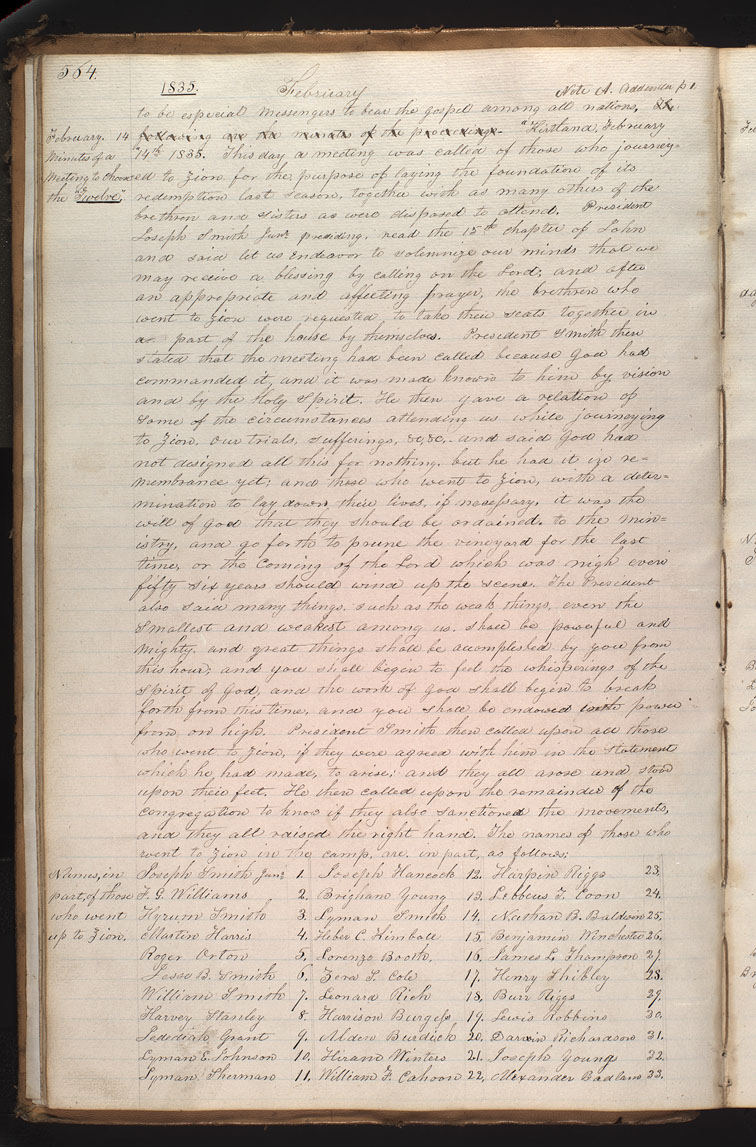 564.
1835. February Note A. addenda p 1.
to be especial messengers to bear the gospel among all nations, The
February. 14 following are the minutes of the proceedings. "Kirtland, February
Minutes of a "14th 1835. This day a meeting was called of those who journey=
Meeting to Choose ed to Zion for the purpose of laying the foundation of its
the "Twelve", redemption last season, together with as many others of the
brethren and sisters as were disposed to attend. President
Joseph Smith Junr. presiding, read the 15th chapter of John
and said let us endeavor to solemnize our minds that we
may receive a blessing by calling on the Lord; and after
an appropriate and affecting prayer, the brethren who
went to Zion were requested to take their seats together in
a part of the house by themselves. President Smith then
stated that the meeting had been called because God had
commanded it, and it was made known to him by vision
and by the Holy Spirit. He then gave a relation of
some of the circumstances attending us while journeying
to Zion, our trials, sufferings, &c, &c. and said God had
not designed all this for nothing, but he had it in re=
membrance yet; and those who went to Zion, with a deter=
mination to lay down their lives, if necessary, it was the
will of God that they should be ordained to the min=
istry, and go forth to prune the vineyard for the last
time, or the coming of the Lord which was nigh even
fifty six years should wind up the scene. The President
also said many things, such as the weak things, even the
smallest and weakest among us shall be powerful and
mighty, and great things shall be accomplished by you from
this hour; and you shall begin to feel the whisperings of the
spirit of God, and the work of God shall begin to break
forth from this time, and you shall be endowed with power
from on high. President Smith then called upon all those
who went to Zion, if they were agreed with him in the statement
which he had made, to arise; and they all arose and stood
upon their feet. He then called upon the remainder of the
congregation to know if they also sanctioned the movements,
and they all raised the right hand. The names of those who
went to Zion in the camp, are, in part, as follows;
Names, in Joseph Smith Junr. 1. Joseph Hancock 12. Harpin Riggs 23.
part, of those F. G. Williams 2. Brigham Young 13. Lebbeus T. Coon 24.
who went Hyrum Smith 3. Lyman Smith 14. Nathan B. Baldwin 25.
up to Zion. Martin Harris 4. Heber C. Kimball 15. Benjamin Winchester 26.
Roger Orton 5. Lorenzo Booth 16. James L. Thompson 27.
Jesse B. Smith 6. Zera S. Cole 17. Henry Shibley 28.
William Smith 7. Leonard Rich 18. Burr Riggs 29.
Harvey Stanley 8. Harrison Burgess 19. Lewis Robbins 30.
Jedediah Grant 9. Alden Burdick 20. Darwin Richardson 31.
Lyman E. Johnson 10. Hiram Winters 21. Joseph Young 32.
Lyman Sherman 11. William F. Cahoon 22. Alexander Badlam 33.